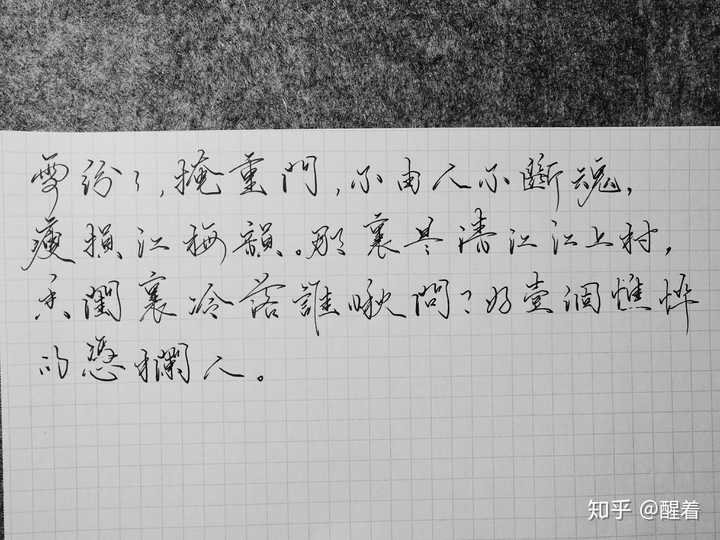 雪紛々,掩重門,不由人不斷魂,
瘦損江梅韻。那裏是清江江上村,
香閨裏冷落誰瞅問?好壹個憔悴
的憑欄人。
知乎 @醒着